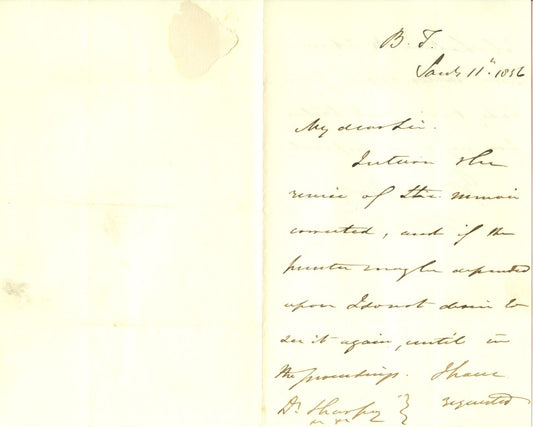 B. T.
Jany 11th. 1856
My dear Sir.
I return the
revise of the memoir
corrected, and if the
printer may be depended
upon I do not desire to
see it again, until in
the proceedings. I have
requested
Dr Sharpey